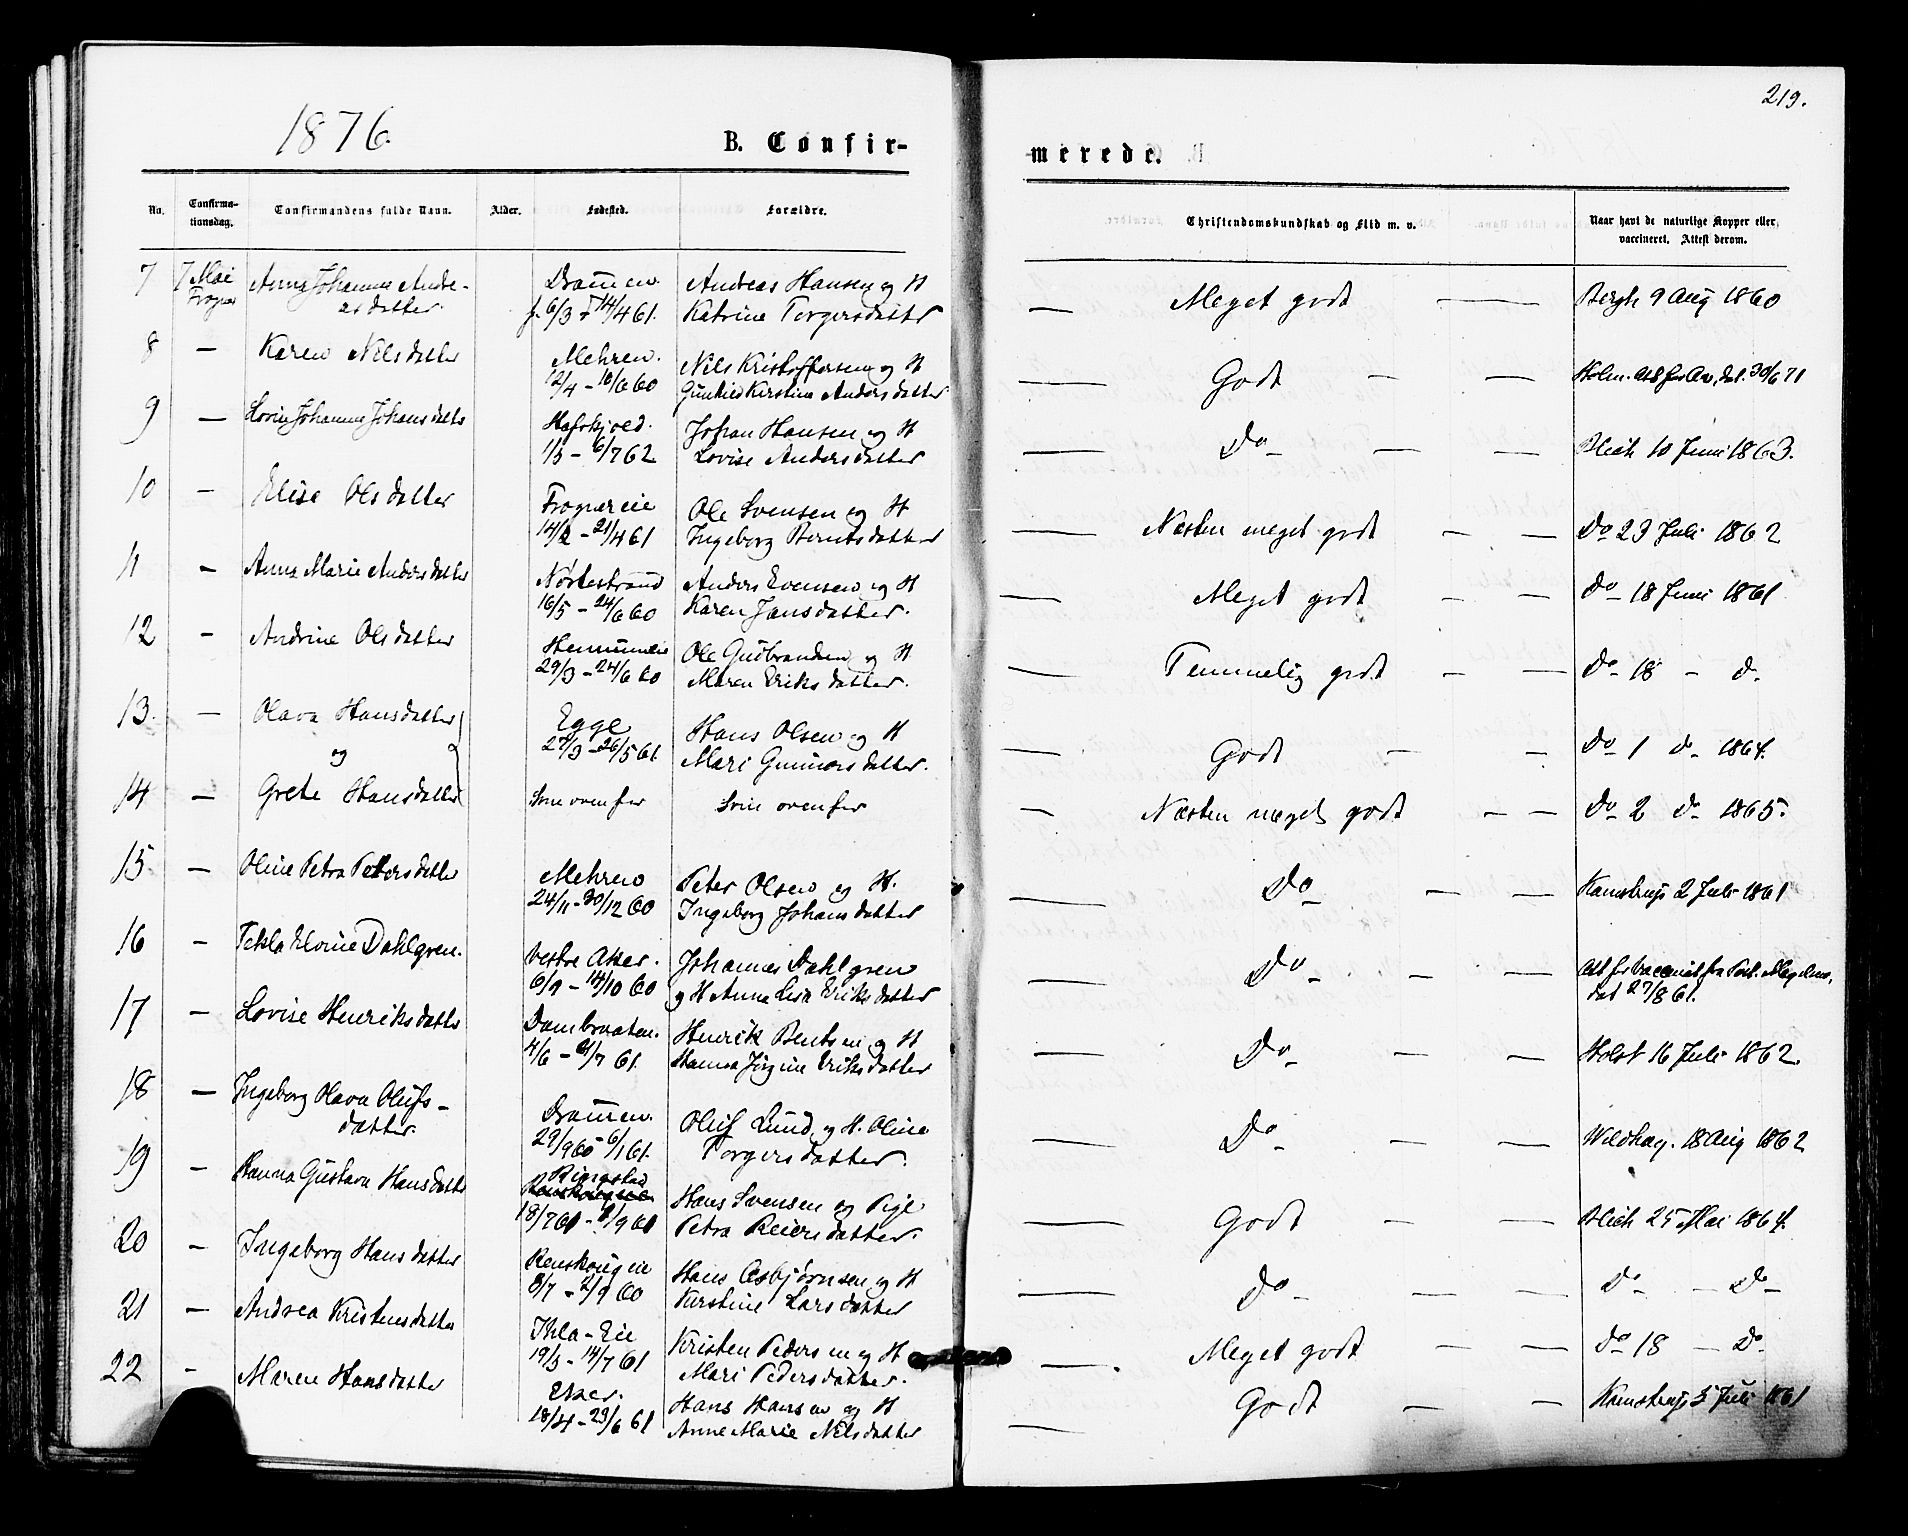 219.
1876.
B. Confir-
merede.
No.
Confirma-
tionsdag.
Confirmandens fulde Navn.
Alder.
Fødested.
Forældre.
Christendomskundskab og Flid m. v.
Naar havt de naturlige Kopper eller
vaccineret. Attest derom.
7 7 Mai Anna Johanne Andre- Dramen Andreas Hansen og H
asdatter. f. 6/3 14/4 61. Katrine Torgersdatter
— Meget godt — Bergh 9 Aug 1860
8 — Karen Nilsdatter Mehren. Nils Kristoffersen og H
12/4 – 10/6 60 Gunhild Kirstine Andersdatter
— Godt — — Holm. dat. 30/6 71
9 — Lovise Johanne Johansdatter Johan Hansen og H
1/5 – 6/7 62 Lovise Andersdatter
— Do — — Blich 10 Juni 1863.
10 — Elise Olsdatter Frogner eie Ole Svensen og H
14/2 – 21/4 61 Ingeborg Berntsdatter
— Næsten meget godt — — Do 23 Juli 1862
11 — Anna Marie Andersdatter Nørdestrand Anders Evensen og H
16/5 – 24/6 60 Karen Jansdatter.
— Meget godt — — Do 18 Juni 1861
12 — Andrine Olsdatter Ole Gudbrandsen og H
29/3 – 24/6 60 Maren Eriksdatter.
— Temmelig godt — — Do 18 – d.
13. — Olava Hansdatter Egge Hans Olsen og H
og 27/3 – 26/5 61. Mari Gunnorsdatter.
— Godt — — Do 1 do 1864.
14 — Grete Hansdatter Som ovenfor Som ovenfor
— Næsten meget godt — — Do 2 Do 1865.
15 — Oline Petra Petersdatter Mehren Peter Olsen og H.
24/11 – 30/12 60 Ingeborg Johansdatter
— Do — — Kamstrup 2 Juli 1861
16 — Tekla Elvine Dahlgren. Vestre Aker. Johannes Dahlgren
6/9 – 14/10 60 og H Anna Lisa Eriksdatter
— Do — — Att for vaccinat. fra
dat 27/8 61.
17 — Lovise Henriksdatter Dambraaten. Henrik Berntsen og H
4/6 – 21/7 61. Hanna Jørgine Eriksdatter
— Do — — Holst 16 Juli 1862.
18 — Ingeborg Olava Olufs-
datter. Dramen. Oluf Lund og H. Oline
29/9 60 – 6/1 61. Torgersdatter.
— Do — — Wildhag. 18 Aug 1862
19 — Hanna Gustava Hansdatter Ringstad Hans Svensen og Pige
18/7 61 – 8/9 61 Petra Reiersdatter.
— Godt — — Blich 25 Mai 1864.
20 — Ingeborg Hansdatter Renskoug eie Hans Asbjørnsen og H
8/7 – 2/9 60 Kirstine Larsdatter
— Do — — Do — Do
21 — Andrea Kristensdatter Ihla-Eie Kristen Pedersen og H
19/5 – 14/7 61 Mari Pedersdatter.
— Meget godt — — Do 18 — Do
22 — Maren Hansdatter Eker. Hans Hansen og H
18/4 – 23/6 61 Anne Marie Nilsdatter
— Godt — — Kamstrup 5 Juli 1861